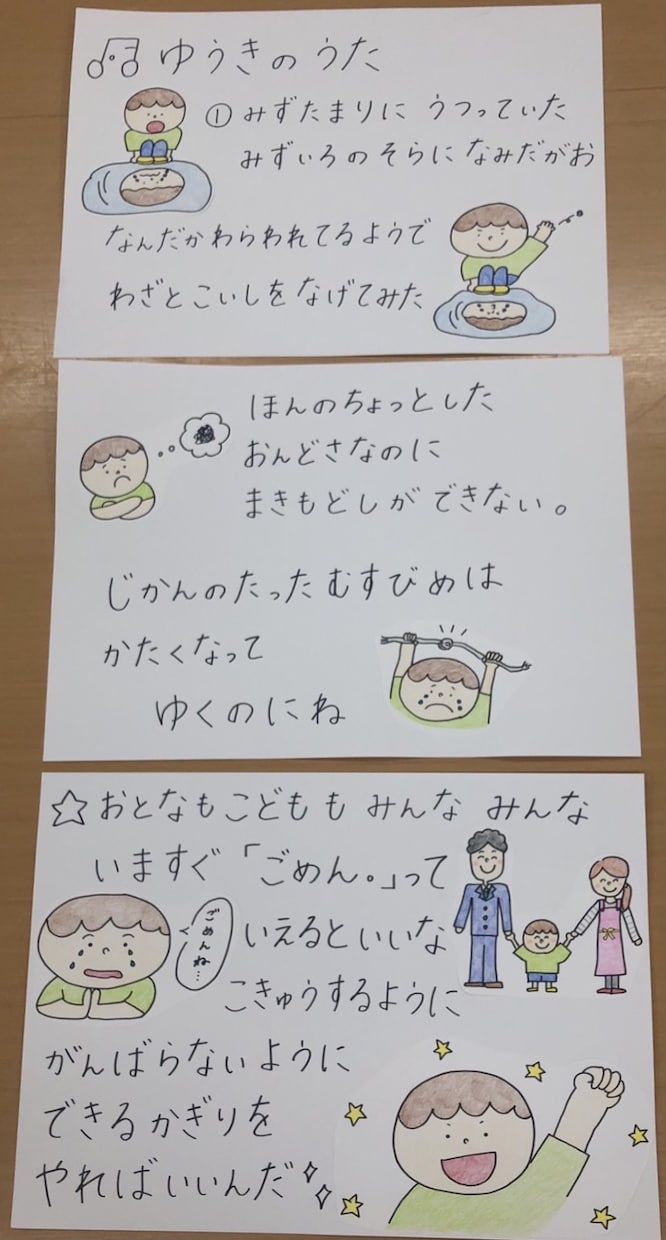 ゆうきのうた
① みずたまりに うつっていた
みずいろのそらに なみだがお
なんだかわらわれてるようで
わざとこいしをなげてみた
ほんのちょっとした
おんどさなのに
まきもどしができない。
じかんのたったむすびめは
かたくなって
ゆくのにね
☆おとなもこどももみんな みんな
いますぐ「ごめん。」って
ごめんね…
いえるといいな
こきゅうするように
がんばらないように
できるかぎりを
やればいいんだ